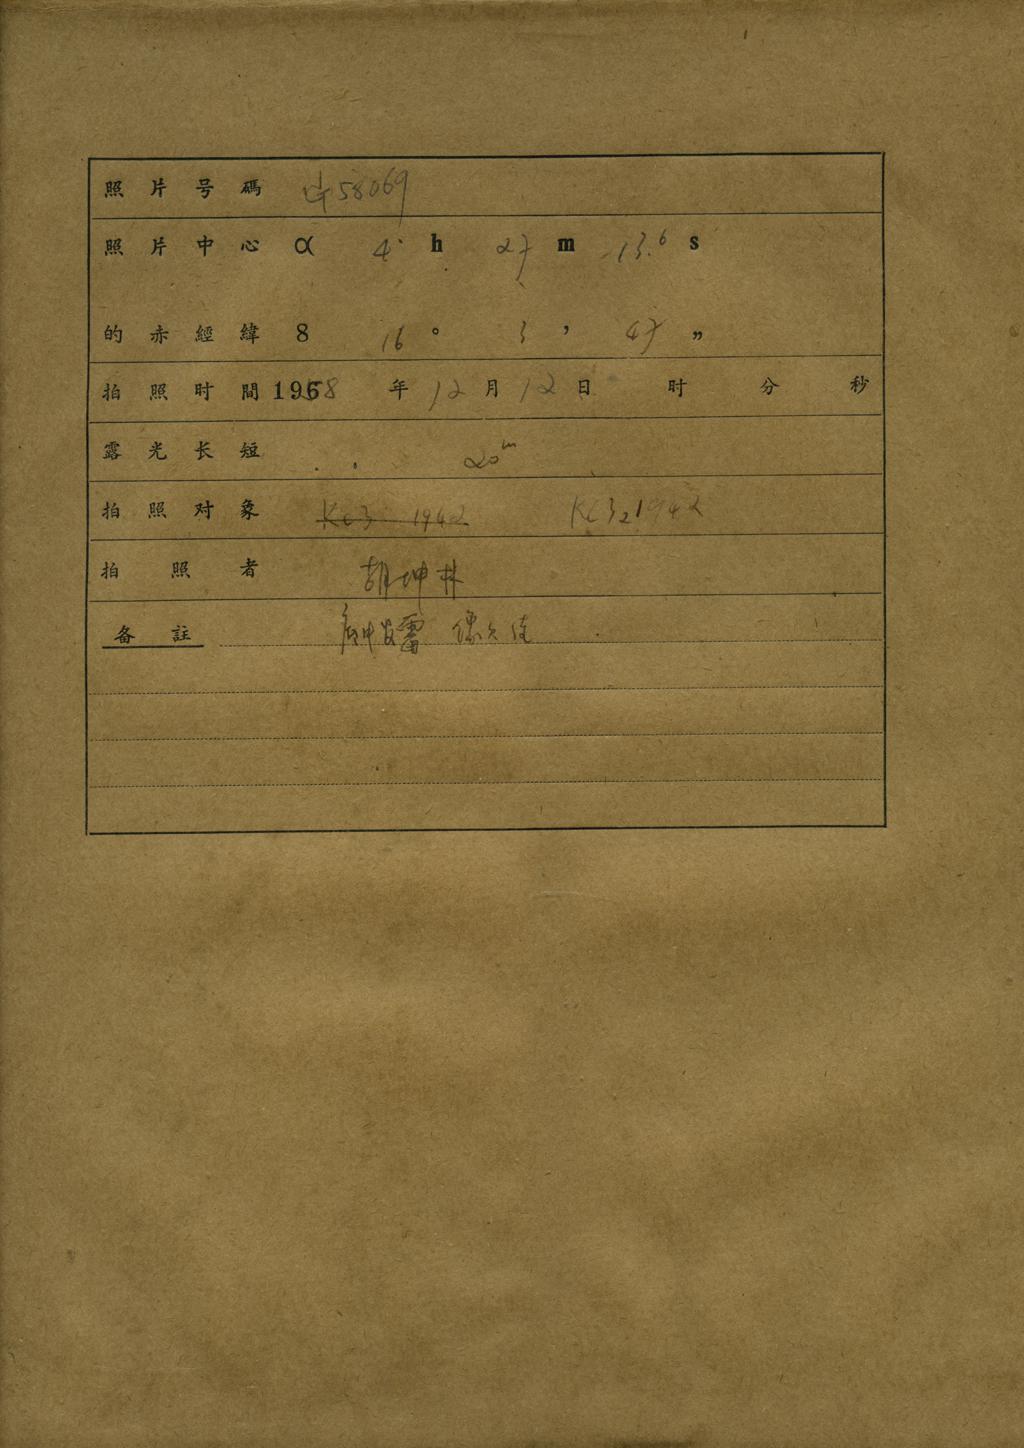 照片号碼 58069
照片中心 α 4 h 27 m 13.6 s
的赤經緯 8 16 ° 3 ' 47 "
拍照时間 1958 年 12 月 12 日 时 分 秒
露光长短 20m
拍照对象 KC3 1942 KC3 1942
拍照者 胡坤林
备註